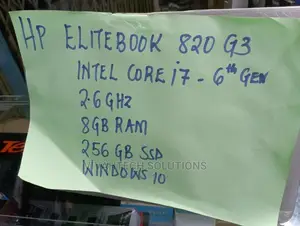 HP ELITEBOOK 820 G3
INTEL CORE i7 - 6th GEN
2.6 GHz
8GB RAM
256 GB SSD
WINDOWS 10